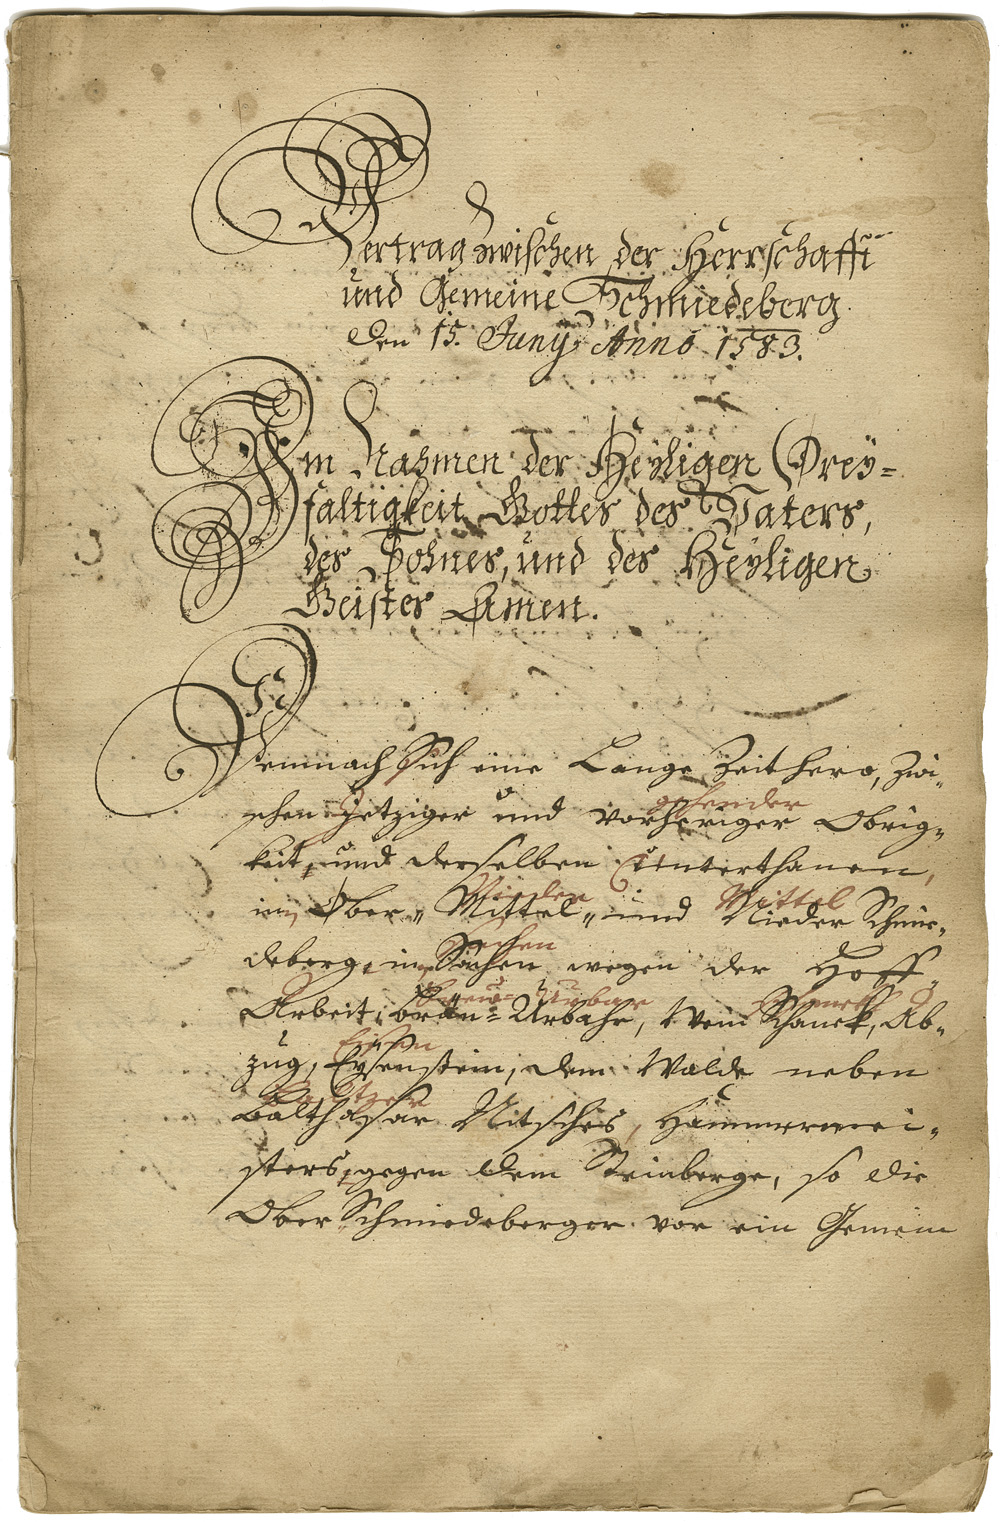 Vertrag zwischen der Herrschafft
und Gemeine Schmiedeberg.
den 15. Juny Anno 1583.
Im Nahmen der Heyligen Drey=
faltigkeit Gottes des Vaters,
des Sohnes, und des Heyligen
Geistes Amen.
Demnach sich eine Lange Zeithero, zwi=
gehender
schen Jetziger und vorheriger Obrig=
keit, und derselben Unterthanen,
Nieder Mittel
in Ober= Mittel= und Nieder Schmie=
Sachen
deberg, in Sachen wegen der Hoff
Urbar
Arbeit, bräu= Urbahr, Wein Schanck, Ab=
Eisen
zug, Eysenstein, dem Walde neben
Balthasar Nitsches, Hammermei=
sters, gegen dem Steinberge, so die
Ober Schmiedeberger vor ein Gemein